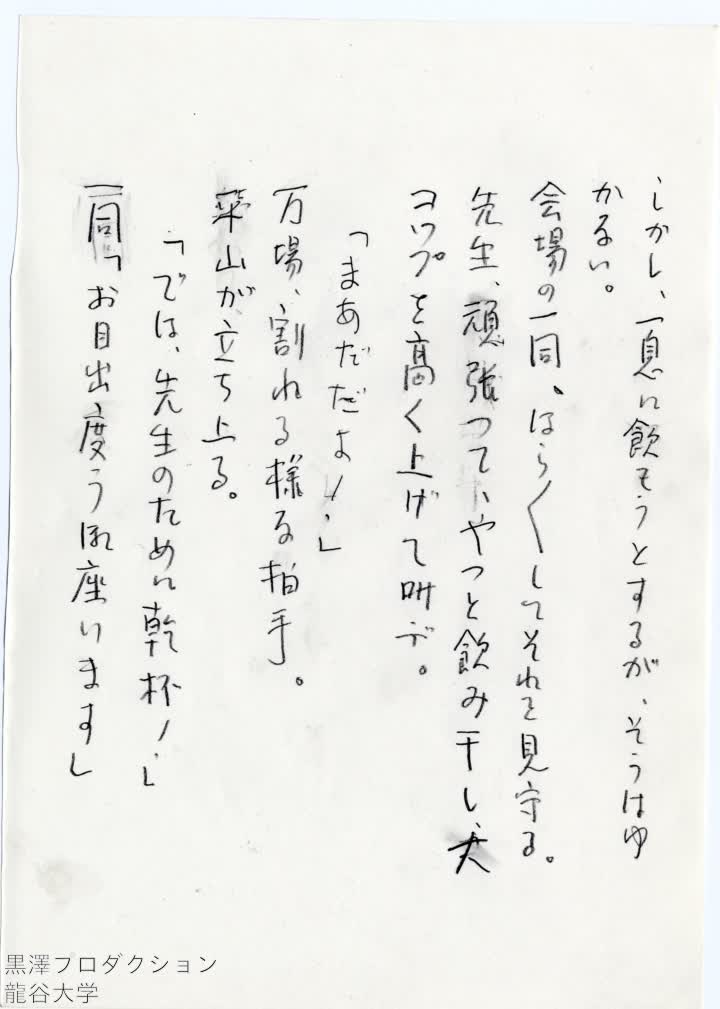 しかし、一息に飲もうとするが、そうはゆ
かない。
会場の一同。はら〱してそれを見守る。
先生、頑張つて、やつと飲み干し、大
コップを高く上げて叫ぶ。
「まあだだよ！」
万場、割れる様な拍手。
桑山が立ち上る。
「では、先生のために乾杯！」
一同「お目出度う御座います」
黒澤プロダクション
龍谷大学